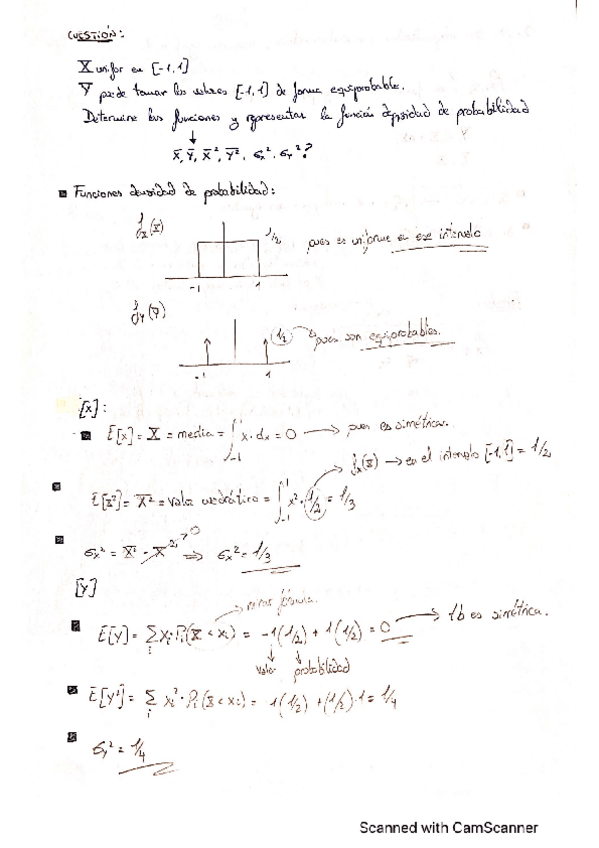 CUESTIÓN:
X unifor en [-1,1]
Y puede tomar los valores [-1,1] de forma equiprobable.
Determine las funciones y representar la función densidad de probabilidad
X̄, Ȳ, X̄², Ȳ², σx², σy²?
Funciones densidad de probabilidad:
fx(x)
1/2
pues es uniforme en ese intervalo
-1 1
fy(y)
1/2 pues son equiprobables.
-1 1
[X]:
E[x] = X̄ = media = ∫₋₁¹ x·dx = 0 → pues es simétrica.
fx(x) → en el intervalo [-1,1] = 1/2
E[x²] = X̄² = valor cuadrático = ∫₋₁¹ x²·1/2 = 1/3
σx² = X̄² - X̄² → 0 ⇒ σx² = 1/3
[Y]
fórmula.
E[Y] = Σ xi·Pi(X<xi) = -1(1/2) + 1(1/2) = 0 → tb es simétrica.
i
valor probabilidad
E[Y²] = Σ xi²·Pi(X<xi) = 1(1/2) + (1/2)·1 = 1/4
i
σy² = 1/4
Scanned with CamScanner